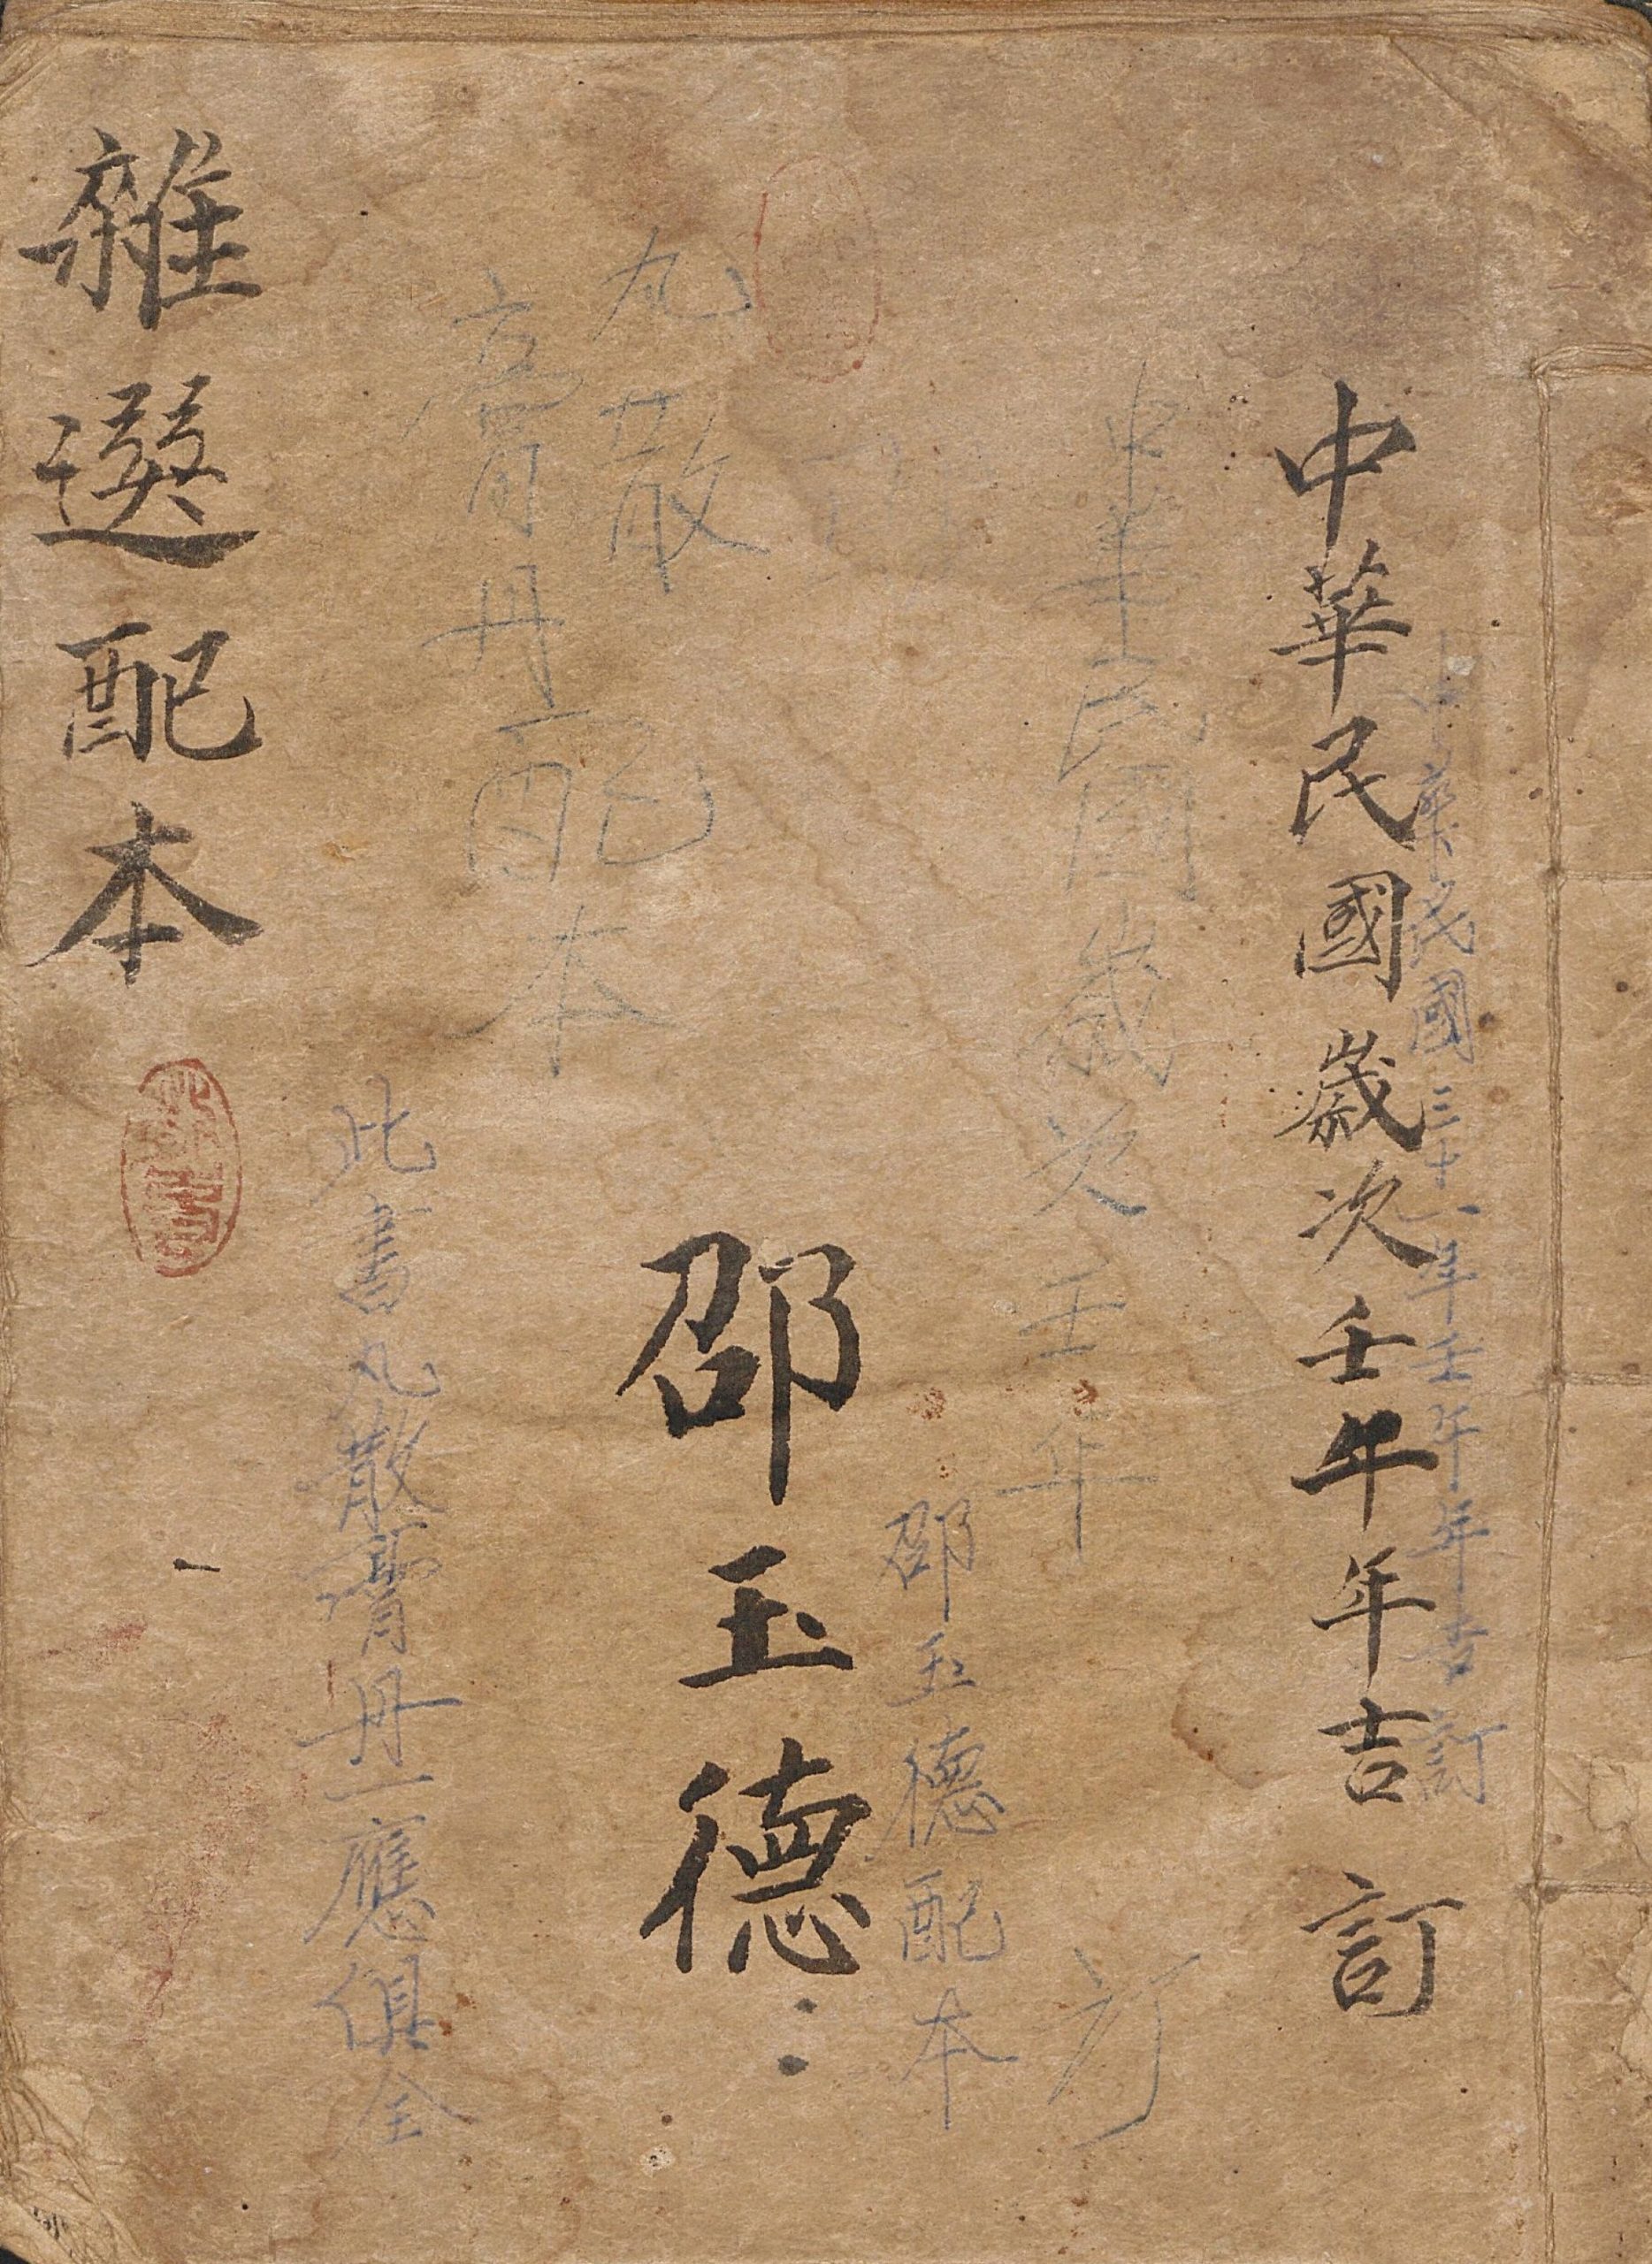 中華民國三十一年壬午年吉訂
中華民國歲次壬午年吉訂
中華民國歲次壬年訂
邵玉德配本
邵玉德
丸散
膏丹配本
此書丸散膏丹一應俱全
雜選配本